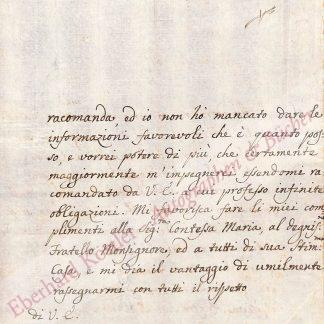 racomanda, ed io non ho mancato dare le
informazioni favorevoli che è quanto pos-
so, e vorrei potere di più, che certamente
maggiormente m'impegnerei essendomi ra
comandato da V. E. a cui professo infinite
obligazioni. Mi favorisca fare li miei com
plimenti alla Sig.ra Contessa Maria, al degniss.mo
Fratello Monsignore, ed a tutti di sua Stim.ma
Casa, e mi dia il vantaggio di umilmente
rassegnarmi con tutti il rispetto
di V. E.
Eberhard Köstler Autographen & Bücher